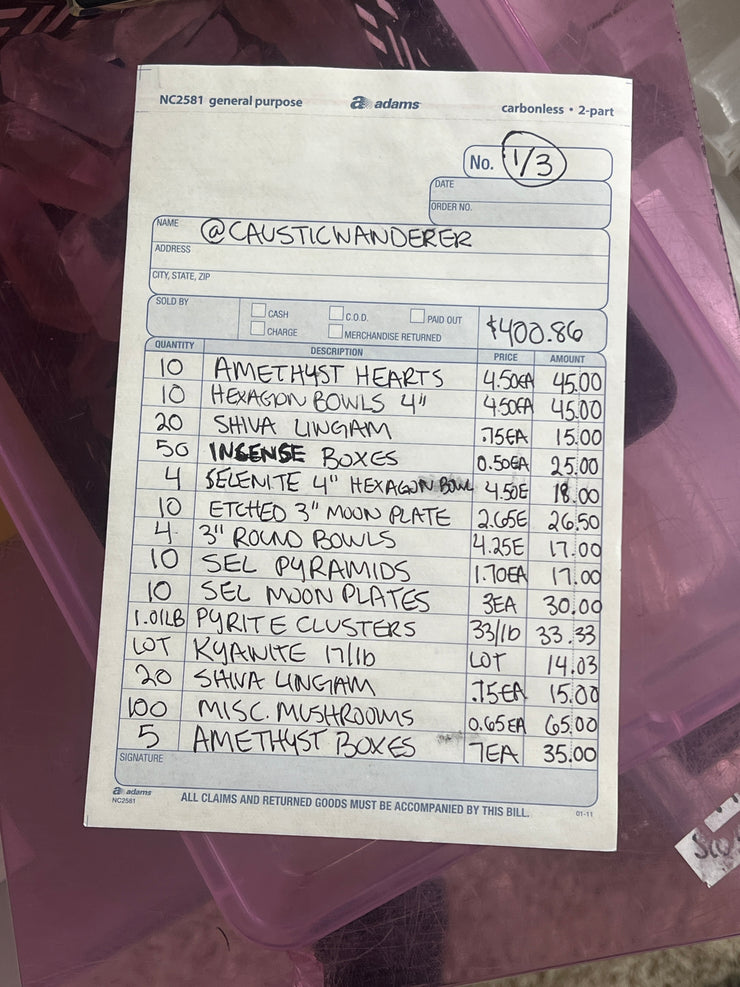 NC2581 general purpose
a adams
carbonless • 2-part
No. 1/3
DATE
ORDER NO.
NAME @CAUSTICWANDERER
ADDRESS
CITY, STATE, ZIP
SOLD BY
CASH C.O.D. PAID OUT
CHARGE MERCHANDISE RETURNED
$400.86
QUANTITY DESCRIPTION PRICE AMOUNT
10 AMETHYST HEARTS 4.50EA 45.00
10 HEXAGON BOWLS 4" 4.50EA 45.00
20 SHIVA LINGAM .75EA 15.00
50 INSENSE BOXES 0.50EA 25.00
4 SELENITE 4" HEXAGON BOWL 4.50E 18.00
10 ETCHED 3" MOON PLATE 2.65E 26.50
4 3" ROUND BOWLS 4.25E 17.00
10 SEL PYRAMIDS 1.70EA 17.00
10 SEL MOON PLATES 3EA 30.00
1.01LB PYRITE CLUSTERS 33/lb 33.33
LOT KYANITE 17/lb LOT 14.03
20 SHIVA LINGAM .75EA 15.00
100 MISC. MUSHROOMS 0.65EA 65.00
5 AMETHYST BOXES 7EA 35.00
SIGNATURE
a adams
NC2581
ALL CLAIMS AND RETURNED GOODS MUST BE ACCOMPANIED BY THIS BILL.
01-11